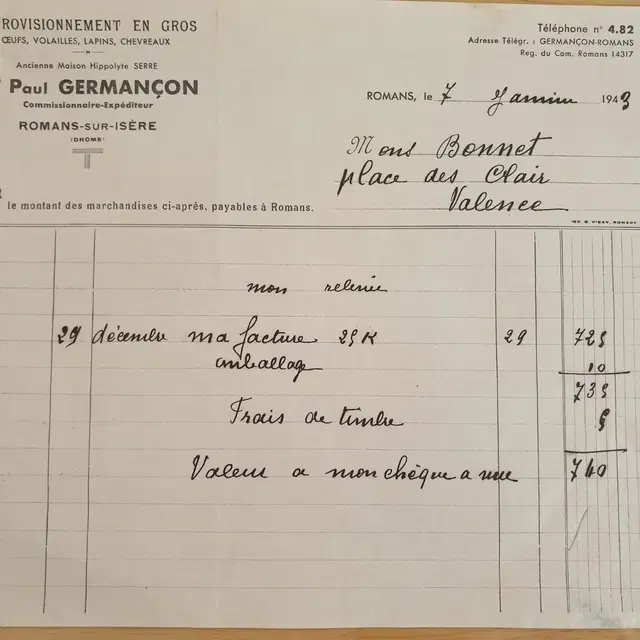 ROVISIONNEMENT EN GROS
ŒUFS, VOLAILLES, LAPINS, CHEVREAUX
Ancienne Maison Hippolyte SERRE
Paul GERMANÇON
Commissionnaire-Expéditeur
ROMANS-SUR-ISÈRE
(DROME)
Téléphone nº 4.82
Adresse Télégr. : GERMANÇON-ROMANS
Reg. du Com. Romans 14317
ROMANS, le 7 Janvier 1943
Mons Bonnet
place des Clair
Valence
le montant des marchandises ci-après, payables à Romans.
IMP. B. VINAY, ROMANS
mon relevée
29 décembre ma facture 25 K 29 725
emballage 10
735
Frais de timbre 5
Valeur a mon chèque a vue 740